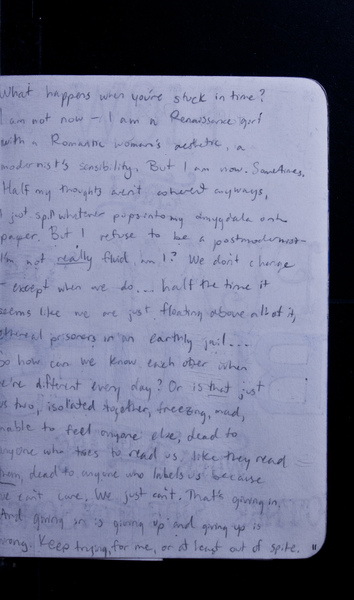 What happens when you're stuck in time?
I am not now – I am a Renaissance girl
with a Romantic woman's aesthetic, a
modernist's sensibility. But I am now. Sometimes,
Half my thoughts aren't coherent anyways,
I just spill whatever pops into my amygdala onto
paper. But I refuse to be a postmodernist–
I'm not really fluid, am I? We don't change
– except when we do... half the time it
seems like we are just floating above all of it,
ethereal prisoners in an earthly jail...
So how can we know each other when
we're different every day? Or is that just
us two, isolated together, freezing, mad,
unable to feel anyone else, dead to
anyone who tries to read us, like they read
them, dead to anyone who labels us because
we can't care. We just can't. That's giving in,
And giving in is giving up and giving up is
wrong. Keep trying, for me, or at least out of spite. "